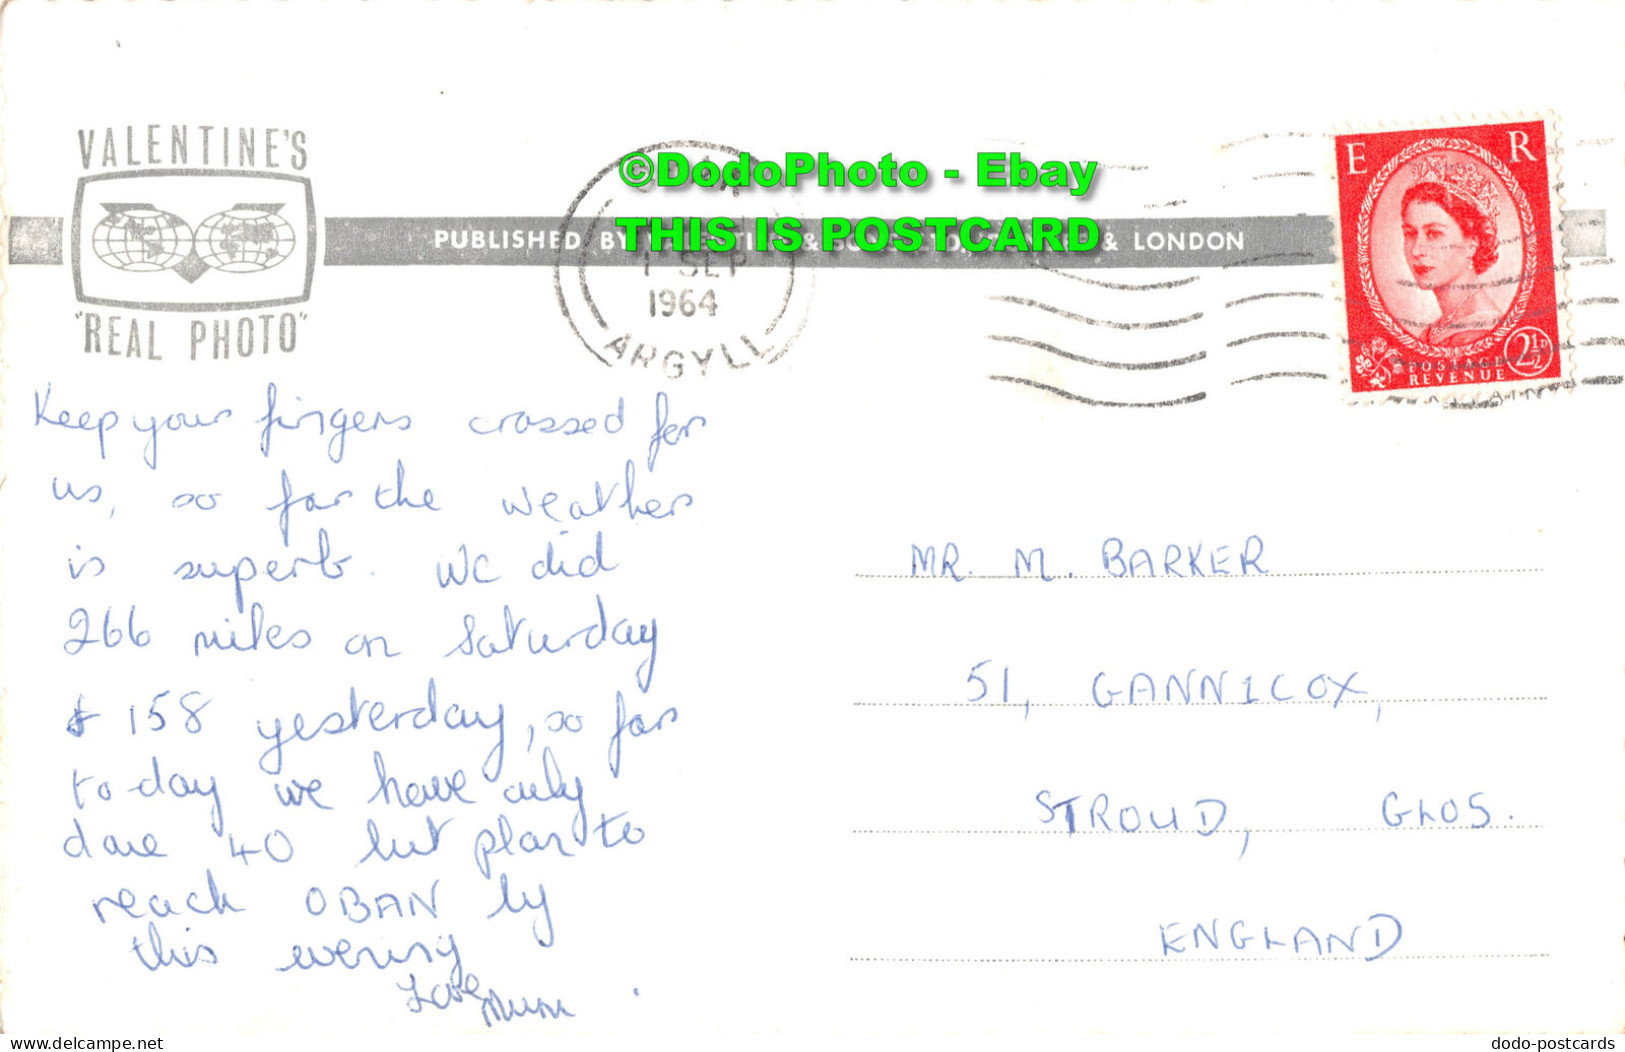 VALENTINE'S
"REAL PHOTO"
©DodoPhoto - Ebay
THIS IS POSTCARD
PUBLISHED BY & LONDON
1 SEP
1964
ARGYLL
E R
POSTAGE
REVENUE
2½D
Keep your fingers crossed for
us, so far the weather
is superb. We did
266 miles on Saturday
& 158 yesterday, so far
to-day we have only
done 40 but plan to
reach OBAN by
this evening
Love Mum.
MR. M. BARKER
51, GANNICOX,
STROUD, GLOS.
ENGLAND
www.delcampe.net
dodo-postcards